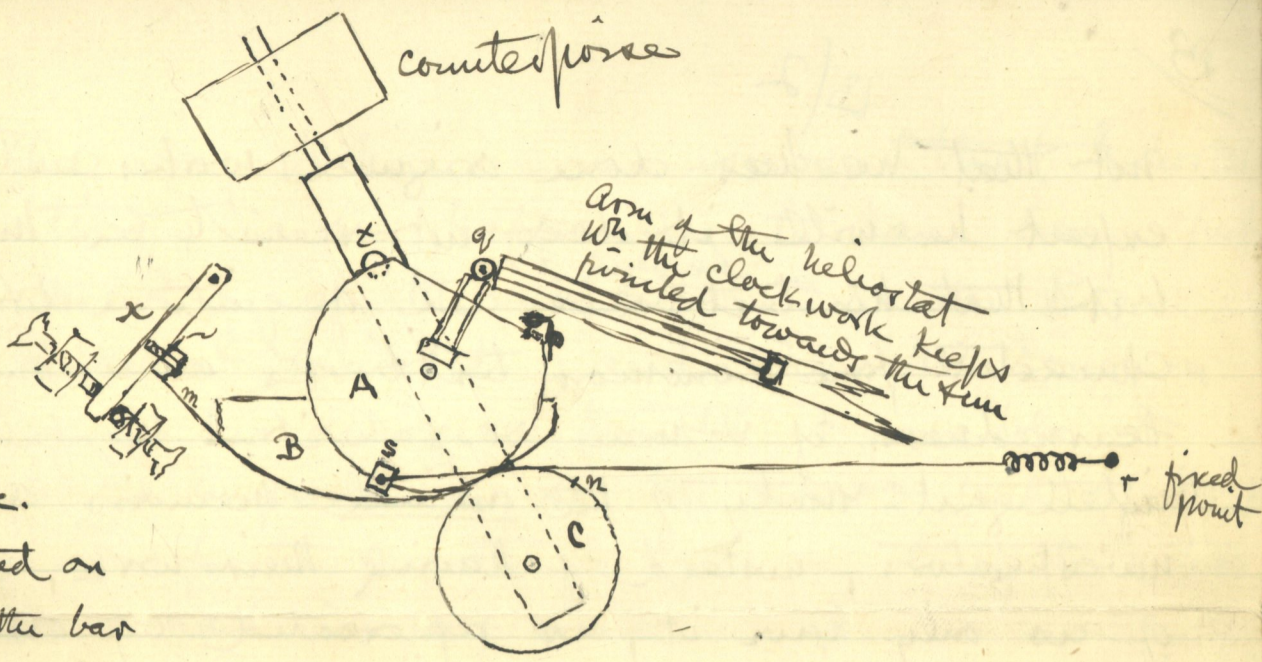 counterpoise
arm of the heliostat
wh the clockwork keeps
pointed towards the sun
t
q
x
A
m
B
s
n
C
r fixed
point
ed on
the bar